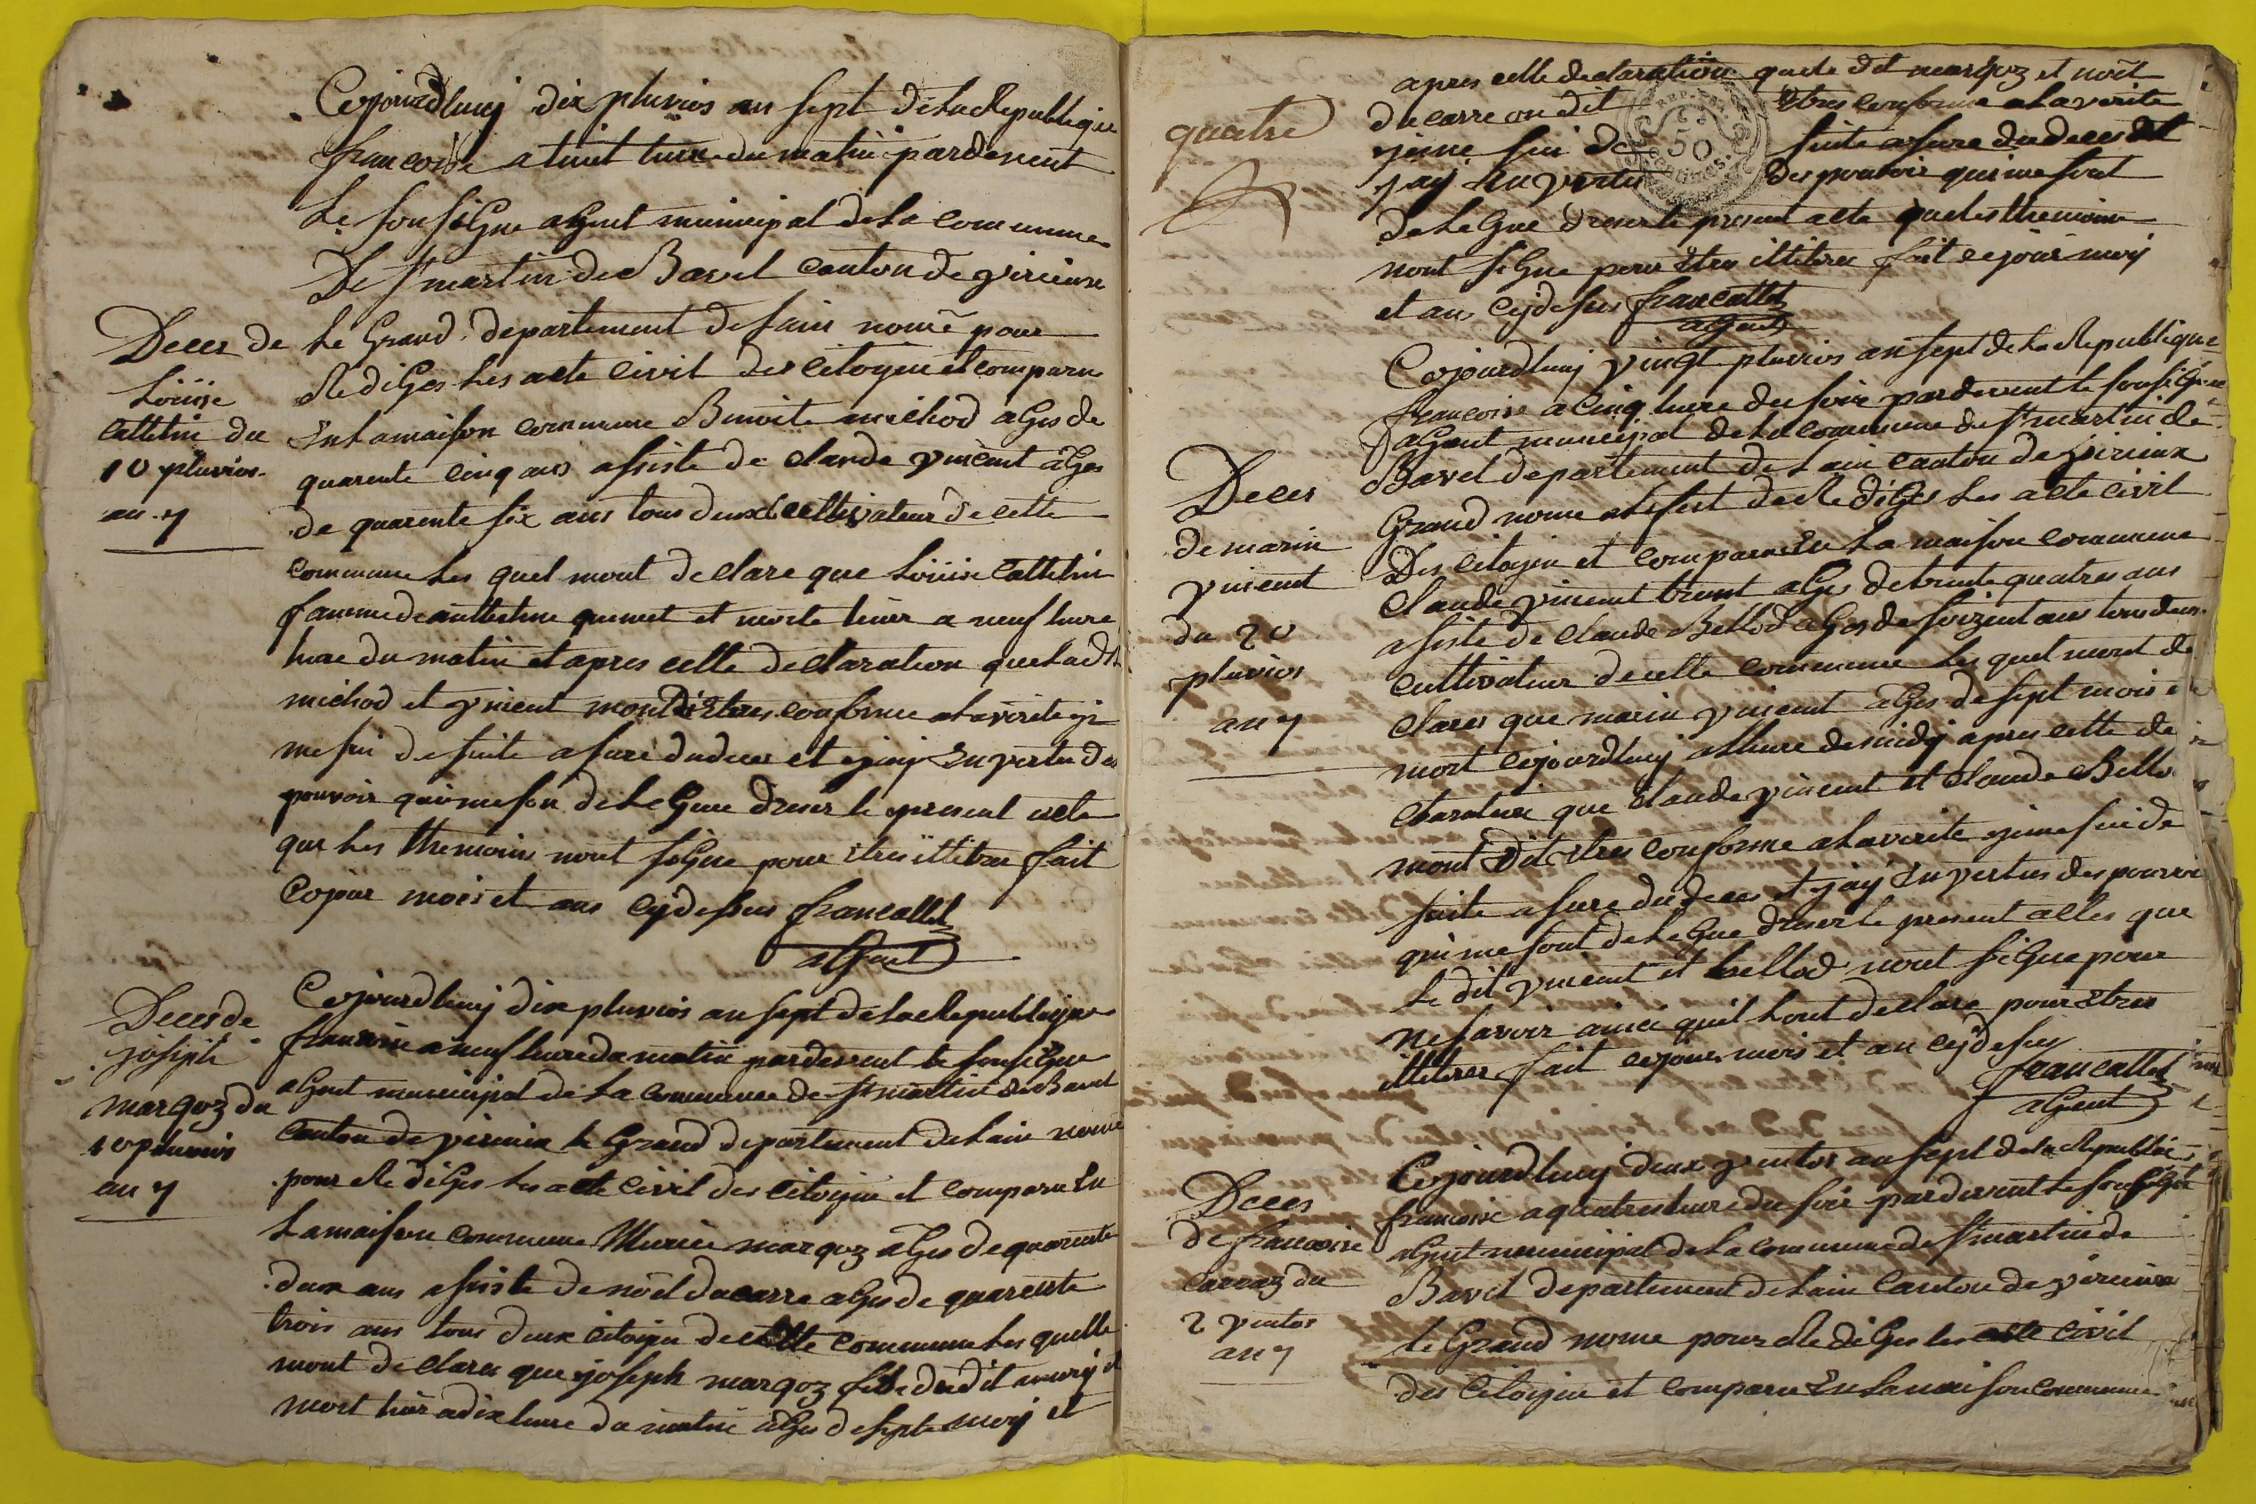 Cejourdhuij dix pluvios an sept dela Republique
francoise a huit hure du matin pardevent
Le sousigne agent municipal dela commune
De st martin de Bavel canton de virieux
Le Grand departement delain nomé pour
Rediges Les acte civil des citoyin et comparu
En La maison commune Benoite michod ages de
quarente cinq ans assiste de claude vincent ages
de quarente six ans tous deux cultivateur de cette
commune Les quel mont declare que Loüise cattelin
famme de anthelme et morte hier a neuf hure
hure du matin et apres cette declaration que Ladit
michod et vincent mont dit Etres conforme a La verite je
me sui de suite asure du deces et jaij En vertu des
pouvoir qui me son delegue dreser le present acte
que Les themoins nont signe pour Etres illitere fait
Cejour mois et ans cy desus francallet
agent
Deces de
Loüise
cattelin du
10 pluvios
an 7
Cejourdhuij dix pluvios an sept dela Republique
francoise a neuf hure du matin pardevent le sousigne
agent municipal de La commune de st martin de Bavel
canton de virieux le Grand departement delain nomé
pour Rediges Les acte civil des citoyin et comparu En
La maison commune marqoz ages de quarente
deux ans assiste de noël ducarre ages de quarente
trois ans tous deux citoyin de cette commune Les quelle
mont declares que joseph marqoz fils dudit et
mort hier a dix hure du matin ages de sept moij et
Deces de
joseph
marqoz du
10 pluvios
an 7
quatre
apres cette declaration que le dit marqoz et noël
ducarre on dit Etres conforme a La verite
je me sui de suite asure du deces et
jaij En vertu des pouvoir qui me sont
delegue dreser le present acte que les themoins
nont signe pour Etres illitere fait cejour moij
et ans cy desus francallet
agent
REP. FRA.
50
centimes
Cejourdhuij vingt pluvios an sept de La Republique
francoise a cinq hure du soir pardevent le sousigne
agent municipal de La commune de st martin de
Bavel departement de Lain canton de virieux
Grand nome de Rediges Les acte civil
Des citoyin et comparu En La maison commune
claude vincent ages de trente quatres ans
asiste de claude Bellod ages de soizent ans tous deux
cultivateur de cette commune Les quel mont de
clares que marin vincent ages de sept mois et
mort cejourdhuij a Lhure de midij apres cette de
claration que claude vincent et claude Bello
mont dit Etres conforme a La verite je me sui de
suite asure du deces et jaij En vertus des pouvoi
qui me sont delegue dreser le present actes que
Le dit vincent et bellod nont signe pour
ne savoir ainci quil Lont declare pour Etres
illiteres fait cejour mois et an cy desus
francallet
agent
Deces
de marin
vincent
du 20
pluvios
an 7
Cejourdhuij deux ventos an sept dela Republique
francoise a quatres hure du soir pardevent le sousigne
agent municipal de La commune de st martin de
Bavel departement de Lain canton de virieux
le Grand nome pour Rediges les acte civil
des citoyin et comparu En La maison commune
Deces
de francoise
du
2 ventos
an 7